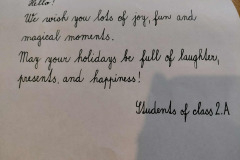 Hello!
We wish you lots of joy, fun and
magical moments.
May your holidays be full of laughter,
presents, and happiness!
Students of class 2.A